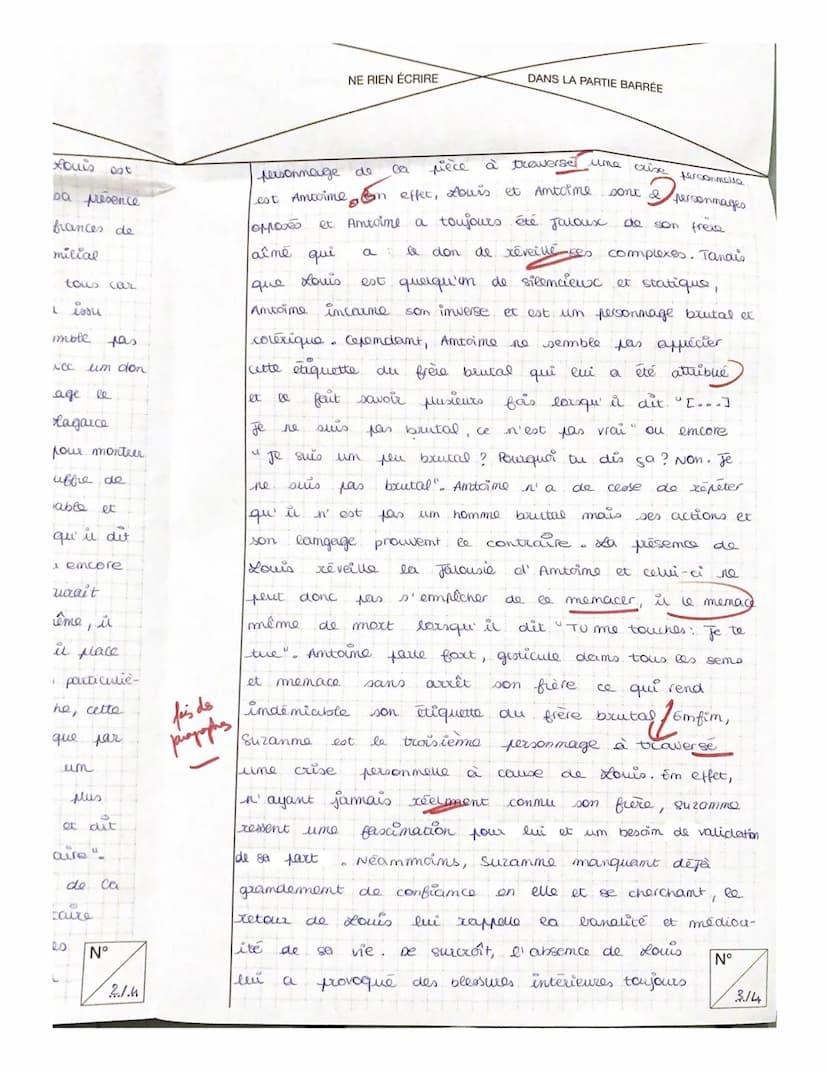 NE RIEN ÉCRIRE
DANS LA PARTIE BARRÉE
Louis est
sa présence
frances de
milial
tous car
issu
mble pas
vec un don
age le
Lagarce
pour montrer
uffre de
able et
qu'il dit
encore
uait
ême, il
il place
particuliè-
he, cette
que par
um
plus
et dit
aire".
de la
taire
es
N°
2/4
personnage de la pièce à traversé une crise personnelle
est Antoine. En effet, Louis et Antoine sont 2 personnages
opposés et Antoine a toujours été jaloux de son frère
aîné qui a : le don de réveillé ces complexes. Tandis
que Louis est quelqu'un de silencieux et statique,
Antoine incarne son inverse et est un personnage brutal et
colérique. Cependant, Antoine ne semble pas apprécier
cette étiquette du frère brutal qui lui a été attribué
et le fait savoir plusieurs fois lorsqu'il dit "[...]
Je ne suis pas brutal, ce n'est pas vrai" ou encore
"Je suis un peu brutal ? Pourquoi tu dis ça ? Non. Je
ne suis pas brutal". Antoine n'a de cesse de répéter
qu'il n'est pas un homme brutal mais ses actions et
son langage prouvent le contraire. La présence de
Louis réveille la jalousie d'Antoine et celui-ci ne
peut donc pas s'empêcher de le menacer, il le menace
même de mort lorsqu'il dit "Tu me touches : Je te
tue". Antoine parle fort, gesticule dans tous les sens
et menace sans arrêt son frère ce qui rend
indéniable son étiquette du frère brutal / Enfin,
fais des
paragraphes
Suzanne est le troisième personnage à traversé
une crise personnelle à cause de Louis. En effet,
n'ayant jamais réelment connu son frère, Suzanne
ressent une fascination pour lui et un besoin de validation
de sa part. Néammoins, Suzanne manquant déjà
grandement de confiance en elle et se cherchant, le
retour de Louis lui rappelle la banalité et médioc-
ité de sa vie. De surcroît, l'absence de Louis
lui a provoqué des blessures intérieures toujours
N°
3/4